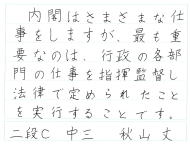 内閣はさまざまな仕
事をしますが、最も重
要なのは、行政の各部
門の仕事を指揮監督し
法律で定められたこと
を実行することです。
二段C 中三 秋山丈